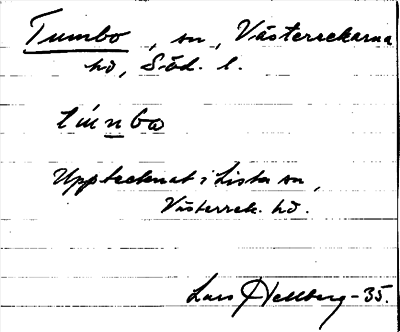 Tumbo, sn, Västerrekarna
hd, Söd. l.
túnbo
Upptecknat i Lista sn,
Västerrek. hd.
Lars Hellberg - 35.